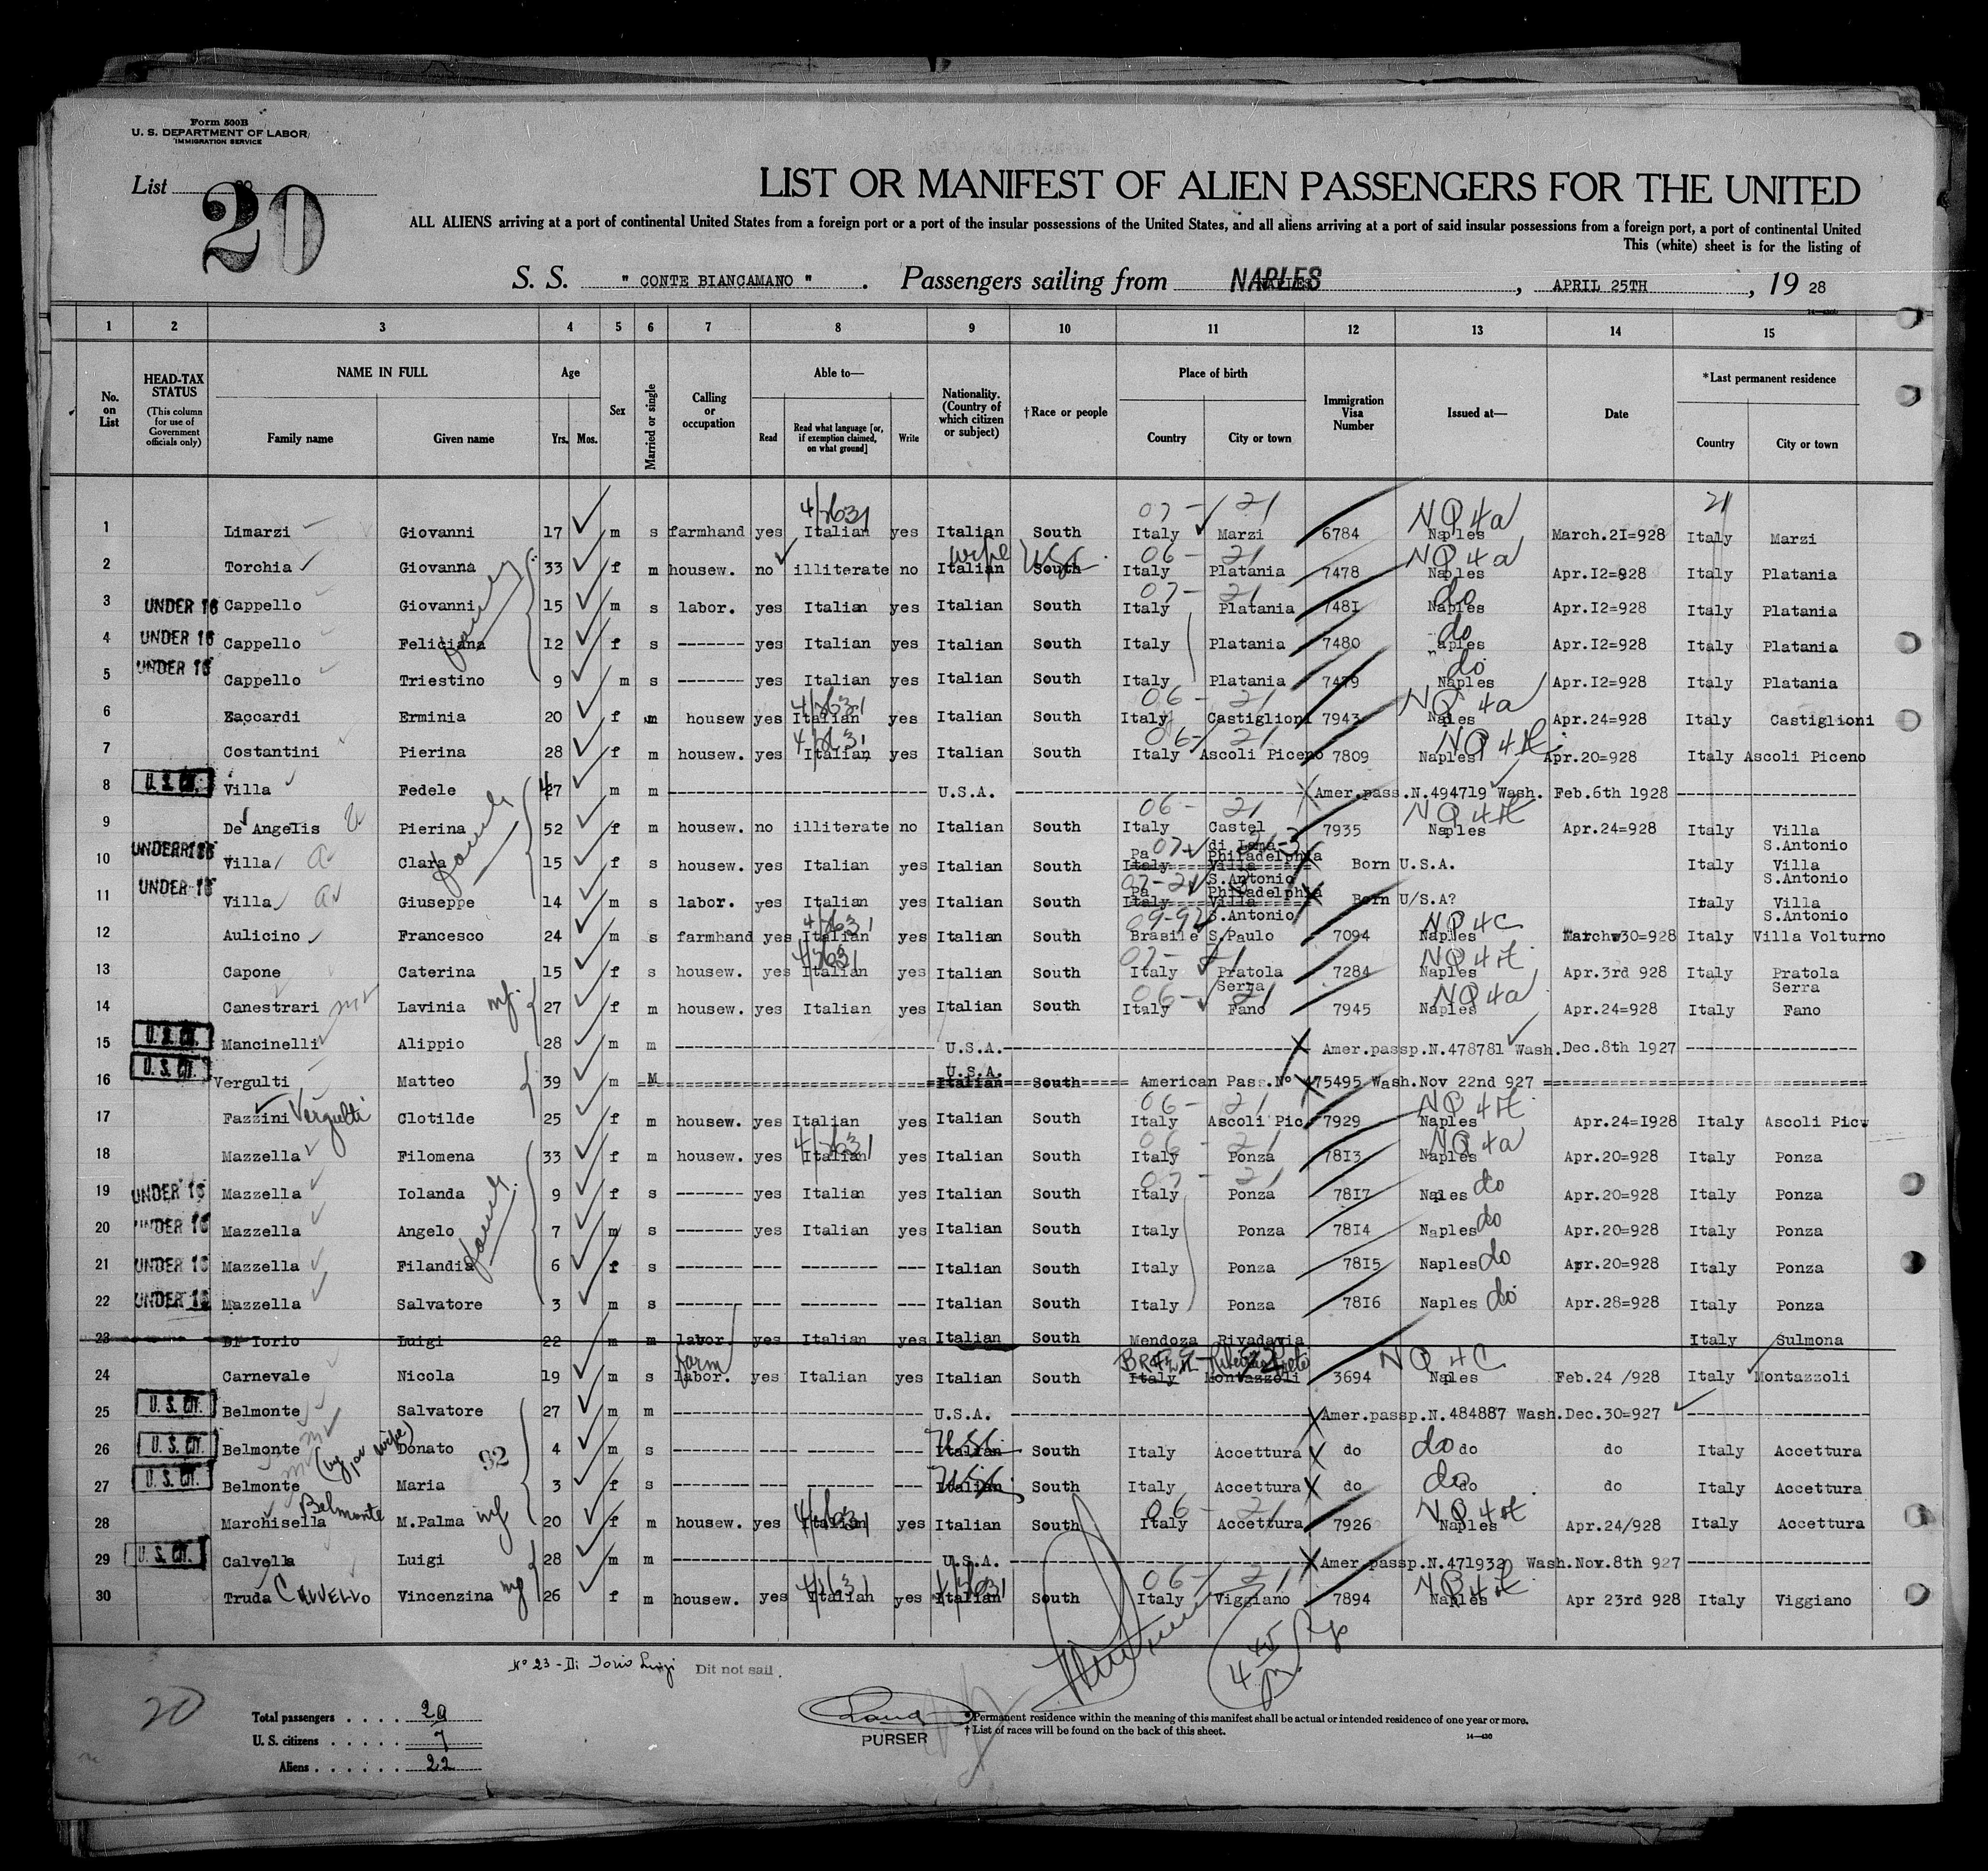 Form 500B
U. S. DEPARTMENT OF LABOR
IMMIGRATION SERVICE
List
20
LIST OR MANIFEST OF ALIEN PASSENGERS FOR THE UNITED
ALL ALIENS arriving at a port of continental United States from a foreign port or a port of the insular possessions of the United States, and all aliens arriving at a port of said insular possessions from a foreign port, a port of continental United
This (white) sheet is for the listing of
S. S. " CONTE BIANCAMANO ". Passengers sailing from NAPLES, APRIL 25TH, 19 28
1 2 3 4 5 6 7 8 9 10 11 12 13 14 15
No. on List
HEAD-TAX STATUS (This column for use of Government officials only)
NAME IN FULL Family name Given name
Age Yrs. Mos.
Sex
Married or single
Calling or occupation
Able to— Read Read what language [or, if exemption claimed, on what ground] Write
Nationality. (Country of which citizen or subject)
†Race or people
Place of birth Country City or town
Immigration Visa Number
Issued at—
Date
*Last permanent residence Country City or town
4/1631 07- 21 NQ4a 21
1 Limarzi Giovanni 17 m s farmhand yes Italian yes Italian South Italy Marzi 6784 Naples March.2I=928 Italy Marzi
wife USC 06- 21 NQ4a
2 Torchia Giovanna 33 f m housew. no illiterate no Italian South Italy Platania 7478 Naples Apr.I2=928 Italy Platania
family 07- 21 do
3 UNDER 16 Cappello Giovanni 15 m s labor. yes Italian yes Italian South Italy Platania 748I Naples Apr.I2=928 Italy Platania
do
4 UNDER 16 Cappello Feliciana 12 f s ------- yes Italian yes Italian South Italy Platania 7480 Naples Apr.I2=928 Italy Platania
do
5 UNDER 16 Cappello Triestino 9 m s ------- yes Italian yes Italian South Italy Platania 7479 Naples Apr.I2=928 Italy Platania
4/1631 06- 21 NQ4a
6 Zaccardi Erminia 20 f m housew yes Italian yes Italian South Italy Castiglioni 7943 Naples Apr.24=928 Italy Castiglioni
4/1631 06- 21
7 Costantini Pierina 28 f m housew. yes Italian yes Italian South Italy Ascoli Piceno 7809 Naples Apr.20=928 Italy Ascoli Piceno
8 U. S. CIT. Villa Fedele 47 m m U.S.A. Amer.pass.N.494719 Wash. Feb.6th 1928
family 06- 21
9 De Angelis Pierina 52 f m housew. no illiterate no Italian South Italy Castel di Lama 7935 Naples Apr.24=928 Italy Villa S.Antonio
10 UNDER 16 Villa Clara 15 f s housew. yes Italian yes Italian South Pa Philadelphia Italy Villa S.Antonio Born U.S.A. Italy Villa S.Antonio
11 UNDER 16 Villa Giuseppe 14 m s labor. yes Italian yes Italian South Pa Philadelphia Italy Villa S.Antonio Born U/S.A? Italy Villa S.Antonio
4/1631 NQ4C
12 Aulicino Francesco 24 m s farmhand yes Italian yes Italian South Brasile S.Paulo 7094 Naples March 30=928 Italy Villa Volturno
4/1631 07- 21
13 Capone Caterina 15 f s housew. yes Italian yes Italian South Italy Pratola Serra 7284 Naples Apr.3rd 928 Italy Pratola Serra
06- 21 NQ4a
14 Canestrari Lavinia 27 f m housew. yes Italian yes Italian South Italy Fano 7945 Naples Apr.24=928 Italy Fano
15 U. S. CIT. Mancinelli Alippio 28 m m U.S.A. Amer.passp.N.478781 Wash.Dec.8th 1927
16 U. S. CIT. Vergulti Matteo 39 m M U.S.A. Italian South American Pass.N° 475495 Wash.Nov 22nd 927
06- 21
17 Fazzini Vergulti Clotilde 25 f m housew. yes Italian yes Italian South Italy Ascoli Pic. 7929 Naples Apr.24=I928 Italy Ascoli Pic
4/1631 06- 21 NQ4a
18 Mazzella Filomena 33 f m housew. yes Italian yes Italian South Italy Ponza 78I3 Naples Apr.20=928 Italy Ponza
family 07- 21
19 UNDER 16 Mazzella Iolanda 9 f s ------- yes Italian yes Italian South Italy Ponza 78I7 Naples do Apr.20=928 Italy Ponza
20 UNDER 16 Mazzella Angelo 7 m s ------- yes Italian yes Italian South Italy Ponza 78I4 Naples do Apr.20=928 Italy Ponza
21 UNDER 16 Mazzella Filandia 6 f s ------- --- -------- --- Italian South Italy Ponza 78I5 Naples do Apr.20=928 Italy Ponza
22 UNDER 16 Mazzella Salvatore 3 m s ------- --- -------- --- Italian South Italy Ponza 78I6 Naples do Apr.28=928 Italy Ponza
23 Di Iorio Luigi 22 m m labor. yes Italian yes Italian South Mendoza Rivadavia Italy Sulmona
farm NQ4C
24 Carnevale Nicola 19 m s labor. yes Italian yes Italian South Italy Montazzoli 3694 Naples Feb.24 /928 Italy Montazzoli
25 U. S. CIT. Belmonte Salvatore 27 m m U.S.A. Amer.passp.N.484887 Wash.Dec.30=927
26 U. S. CIT. Belmonte Donato 4 m s Italian USC South Italy Accettura do do do do Italy Accettura
92
27 U. S. CIT. Belmonte Maria 3 f s Italian USC South Italy Accettura do do do do Italy Accettura
4/1631 06- 21
28 Marchisella Belmonte M.Palma 20 f m housew. yes Italian yes Italian South Italy Accettura 7926 Naples Apr.24/928 Italy Accettura
29 U. S. CIT. Calvella Luigi 28 m m U.S.A. Amer.passp.N.471932 Wash.Nov.8th 927
4/1631 06- 21
30 Truda CALVELLO Vincenzina 26 f m housew. yes Italian yes Italian South Italy Viggiano 7894 Naples Apr 23rd 928 Italy Viggiano
N° 23 - Di Iorio Luigi Dit not sail.
20
Total passengers . . . . 29
U. S. citizens . . . . . 7
Aliens . . . . . . 22
PURSER
* Permanent residence within the meaning of this manifest shall be actual or intended residence of one year or more.
† List of races will be found on the back of this sheet.
14—430